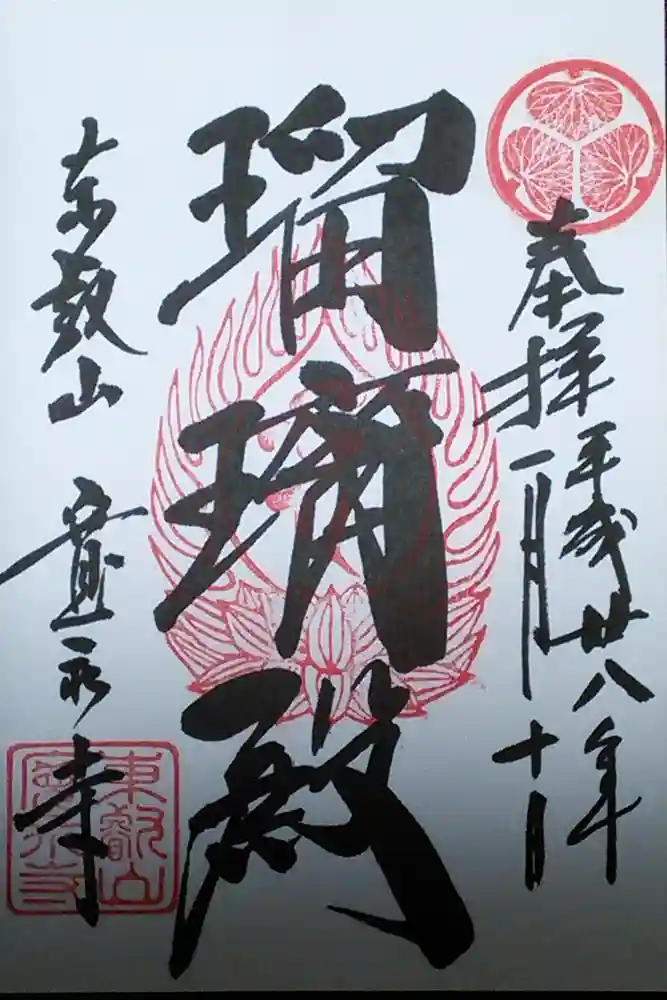 奉拝
平成廿八年
一月十日
瑠璃殿
東叡山 寛永寺
東叡山
寛永寺